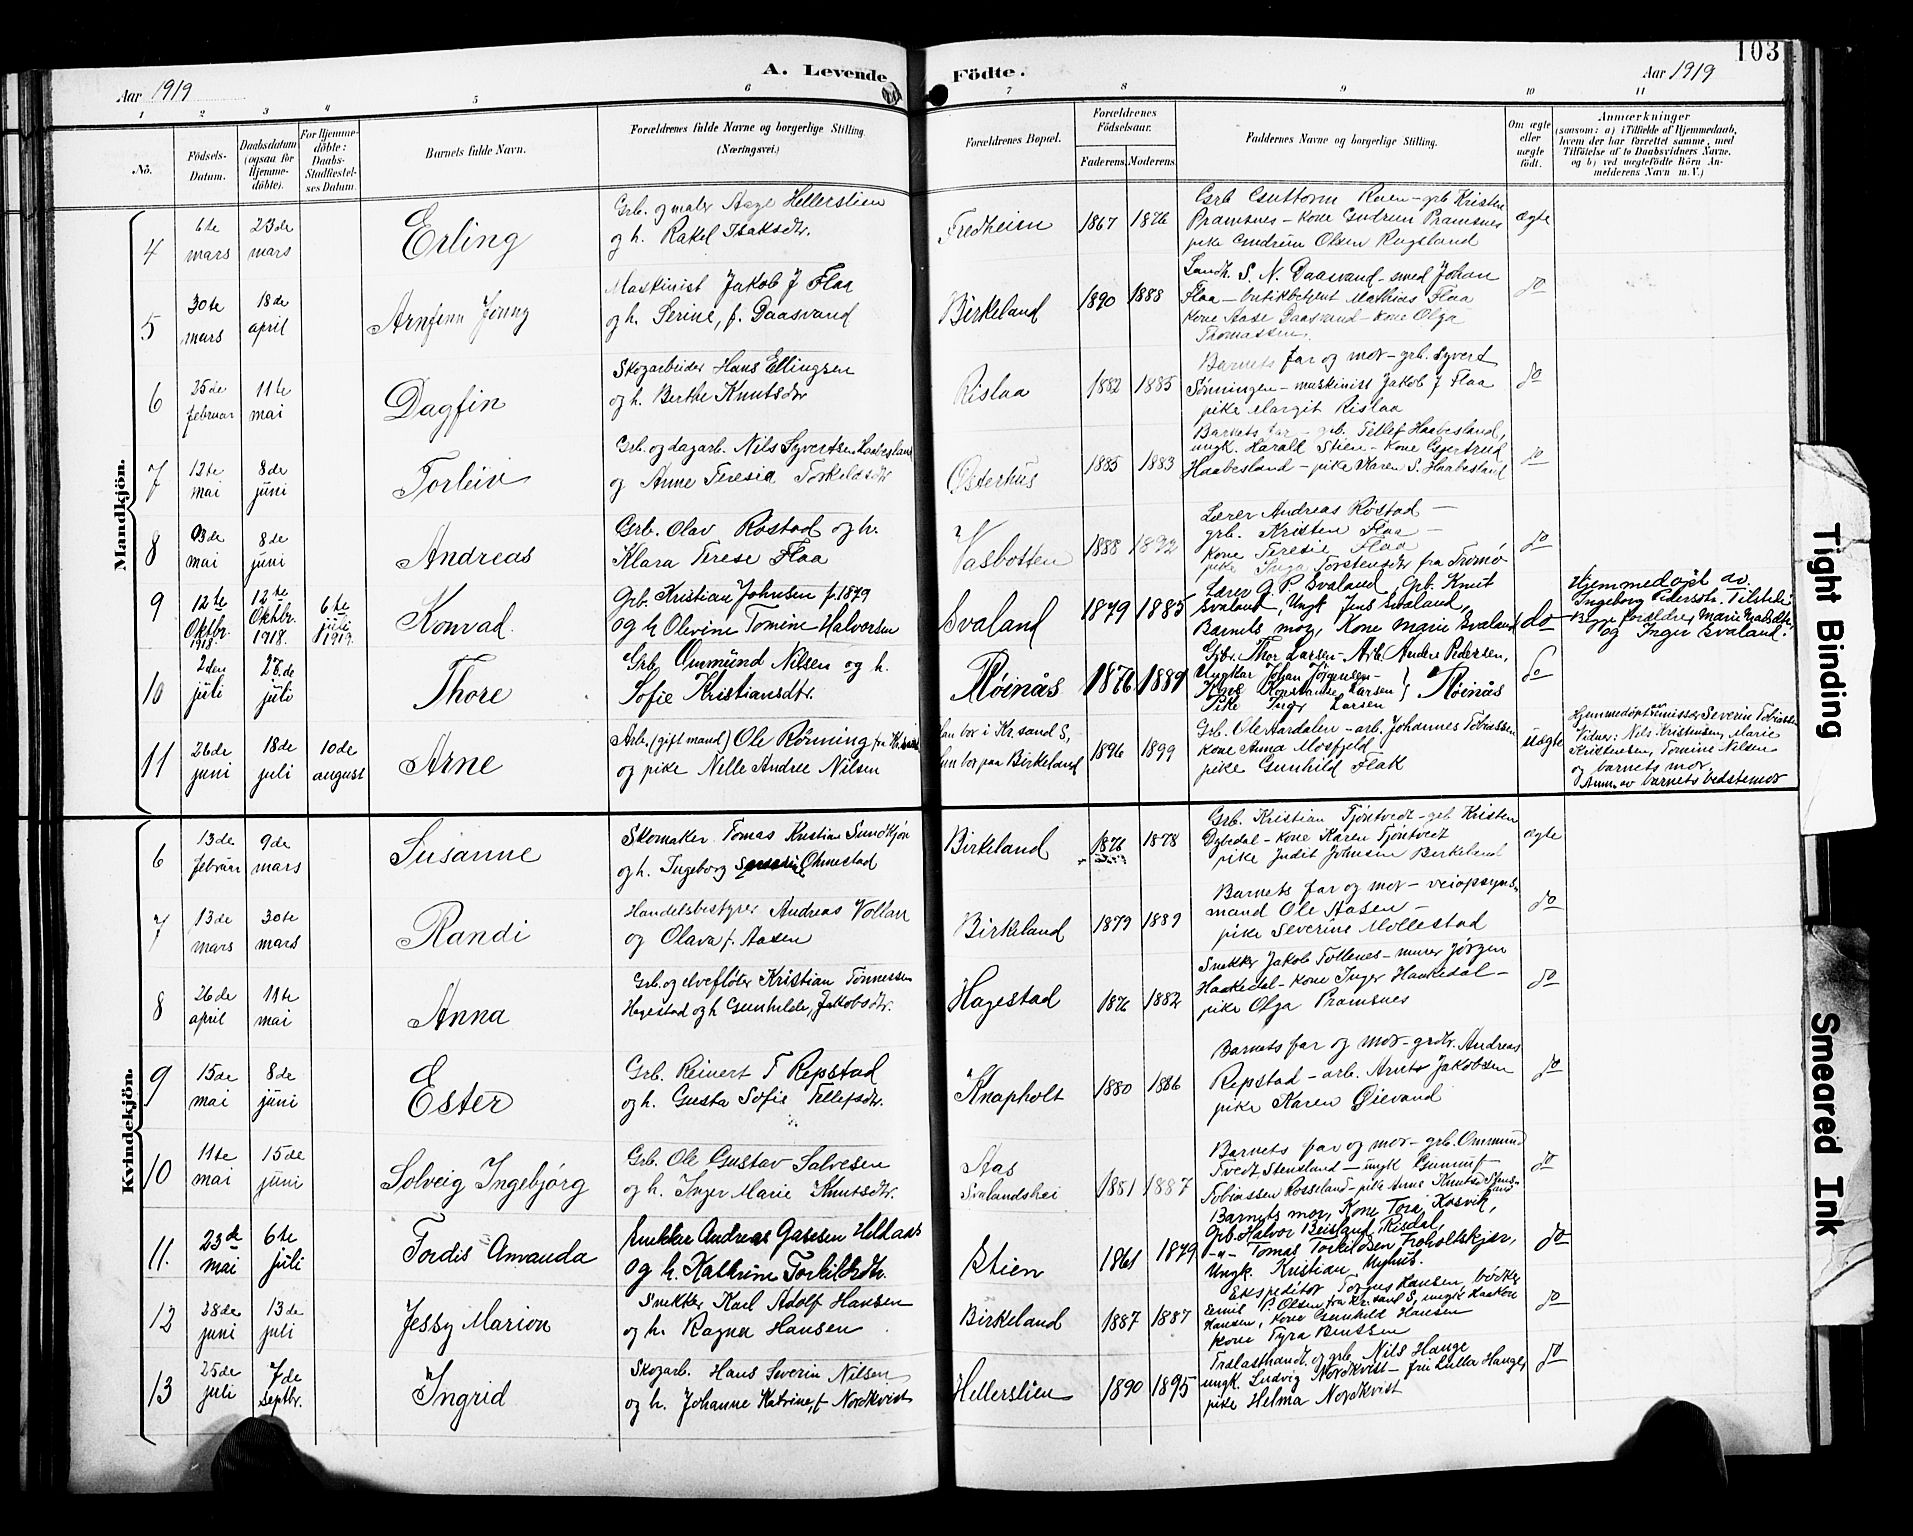 103
Aar 1919
A. Levende Födte.
Aar 1919
1 2 3 4 5 6 7 8 9 10 11
No.
Födsels-Datum.
Daabsdatum (ogsaa for Hjemme-döbte).
For Hjemme-döbte: Daabs-Stadfæstel-ses Datum.
Barnets fulde Navn.
Forældrenes fulde Navne og borgerlige Stilling.
(Næringsvei.)
Forældrenes Bopæl.
Forældrenes Födselsaar.
Faderens. Moderens.
Faddernes Navne og borgerlige Stilling.
Om ægte eller uægte födt.
Anmærkninger
(saasom: a) i Tilfælde af Hjemmedaab,
hvem der har forrettet samme, med
Tilföielse af to Daabsvidners Navne,
og b) ved uegtefödte Börn An-
melderens Navn m. V.)
Mandkjön.
4
6te mars
23de mars
Erling
Grb. og maler Aage Hellerslien
og h. Rakel Isaksdtr.
Fredheim
1867 1876
Grb Guttorm Roen - grb Kristen
Pramsnes - kone Gudrun Pramsnes
pike Gudrun Olsen Rugsland
ægte
5
30te mars
18de april
Arnfinn Jonny
Maskinist Jakob J Flaa
og h. Serine, f. Daasvand
Birkeland
1890 1888
Landh. S. N. Daasvand - smed Johan
Flaa - butikbetjent Mathias Flaa
kone Aase Daasvand - kone Olga
Thomassen.
do
6
25de februar
11te mai
Dagfin
Skogarbeider Hans Ellingsen
og h. Berthe Knutsdtr
Rislaa
1882 1885
Barnets far og mor - grb. Syvert
Sønningen - maskinist Jakob J Flaa
pike Margit Rislaa
do
7
12te mai
8de juni
Torleiv
Grb. og dagarb. Nils Syvertsen Haabesland
og Anne Teresia Torkildsdtr
Østerhus
1885 1883
Barnets far - grb. Tellef Haabesland,
ungk. Harald Stien - kone Gjertrud
Haabesland - pike Karen S. Haabesland
do
8
3de mai
8de juni
Andreas
Grb. Olav Røstad og h.
Klara Terese Flaa
Vasbotten
1888 1892
Lærer Andreas Røstad -
grb. Kristen Flaa -
kone Teresie Flaa
pike Inga Torstensdtr fra Tromø
do
9
12te Oktbr. 1918.
12te Oktbr. 1918.
6te juli 1919.
Konrad.
Grb. Kristian Johnsen f. 1879
og h Olevine Tomine Halvorsen
Svaland
1879 1885
Lærer G. P. Svaland, Grb. Knut
Svaland, Ungk Jens Svaland,
Barnets mor, Kone Marie Svaland
do
Hjemmedøpt av
Ingeborg Pedersdtr. Tilstede
Begge forældre,
og Inger Svaland.
10
2den juli
27de juli
Thore
Grb. Ommund Nilsen og h.
Sofie Kristiansdtr.
Røinås
1876 1889
Gbr. Thor Larsen - Arb. Andre Pedersen,
Ungkar Johan Jørgensen -
Kone Konstanse Larsen } Røinås
Pike Inger Larsen
do
11
26de juni
18de juli
10de august
Arne
Arb. (gift mand) Ole Rönning fra
og pike Nelle Andree Nilsen
Han bor i Kr.sand S,
hun bor paa Birkeland
1896 1899
Grb. Ole Aardalen - arb. Johannes Tobiassen
kone Anna Mosfjeld
pike Gunhild Flak
uægte
Hjemmedøpt Severin Tobiassen
Vitner: Nils Kristensen, Marie
Kristensen, Tomine Nilsen
og barnets mor.
Anm. av barnets bedstemor
Kvindekjön.
6
13de februar
9de mars
Susanne
Skomaker Tomas Kristian Sundkjøn
og h. Ingeborg Ohmestad
Birkeland
1876 1878
Grb. Kristian Tjöntvedt - grb Kristen
Dybedal - kone Karen Tjöntvedt
pike Judit Johnsen Birkeland
ægte
7
13de mars
30te mars
Randi
Handelsbestyrer Andreas Vollan
og Olava f. Aasen
Birkeland
1879 1889
Barnets far og mor - veiopsyns-
mand Ole Aasen -
pike Severine Mollestad
do
8
26de april
11te mai
Anna
Grb. og elvefløter Kristian Tønnessen
Hagestad og h Gunhilde, Jakobsdtr.
Hagestad
1876 1882
Snekker Jakob Tollenes - murer Jørgen
Haakedal - kone Inger Haakedal -
pike Olga Pramsnes
do
9
15de mai
8de juni
Ester
Grb. Reinert T Repstad
og h. Gusta Sofie Tellefsdtr.
Knapholt
1880 1886
Barnets far og mor - grdr. Andreas
Repstad - arb. Arnt Jakobsen
pike Karen Øievand
do
10
11te mai
15de juni
Solveig Ingebjørg
Grb. Ole Gustav Salvesen
og h. Inger Marie Knutsdtr.
Aas
Svalandshei
1881 1887
Barnets far og mor - grb. Ommund
Tvedt, Stensland - ungk Gunnuf
Tobiassen Rosseland - pike Anne Knutsd Stens-
land
do
11.
23de mai
6te juli
Tordis Amanda
Snekker Andreas Gasesen Heldaas
og h. Kathrine Torkildsdtr.
Stien
1861 1879
Barnets mor, Kone Tora Kosvik,
Grb. Halvor Beisland, Risdal,
-"- Tomas Torkildsen Froholtskjær,
Ungk. Kristian Myhus.
do
12
28de juni
13de juli
Jessy Marion
Snekker Karl Adolf Hansen
og h. Ragna Hansen
Birkeland
1887 1887
Ekspeditør Torgus Hansen, bødker
Emil P. Olsen fra Kr.sand S, ungk Haakon
Hansen, kone Gunhild Hansen
kone Tyra Bentsen
do
13
25de juli
7de septbr.
Ingrid
Skogarb. Hans Severin Nilsen
og h. Johanne Katrine, f. Nordkvist
Hellerslien
1890 1895
Trælasthandl. og grb. Nils Hauge
ungk. Ludvig Nordkvist - fru Lulla Hauge,
pike Helma Nordkvist
do
Tight Binding
Smeared Ink